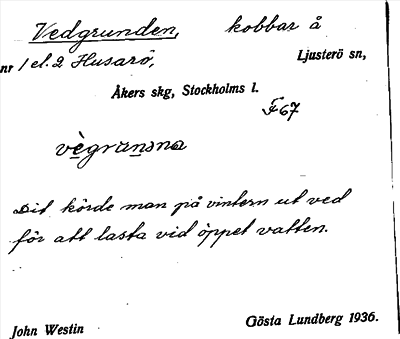 Vedgrunden, kobbar å
nr 1 el. 2 Husarö, Ljusterö sn,
Åkers skg, Stockholms l.
F67
vègranɔna
Dit körde man på vintern ut ved
för att lasta vid öppet vatten.
John Westin Gösta Lundberg 1936.